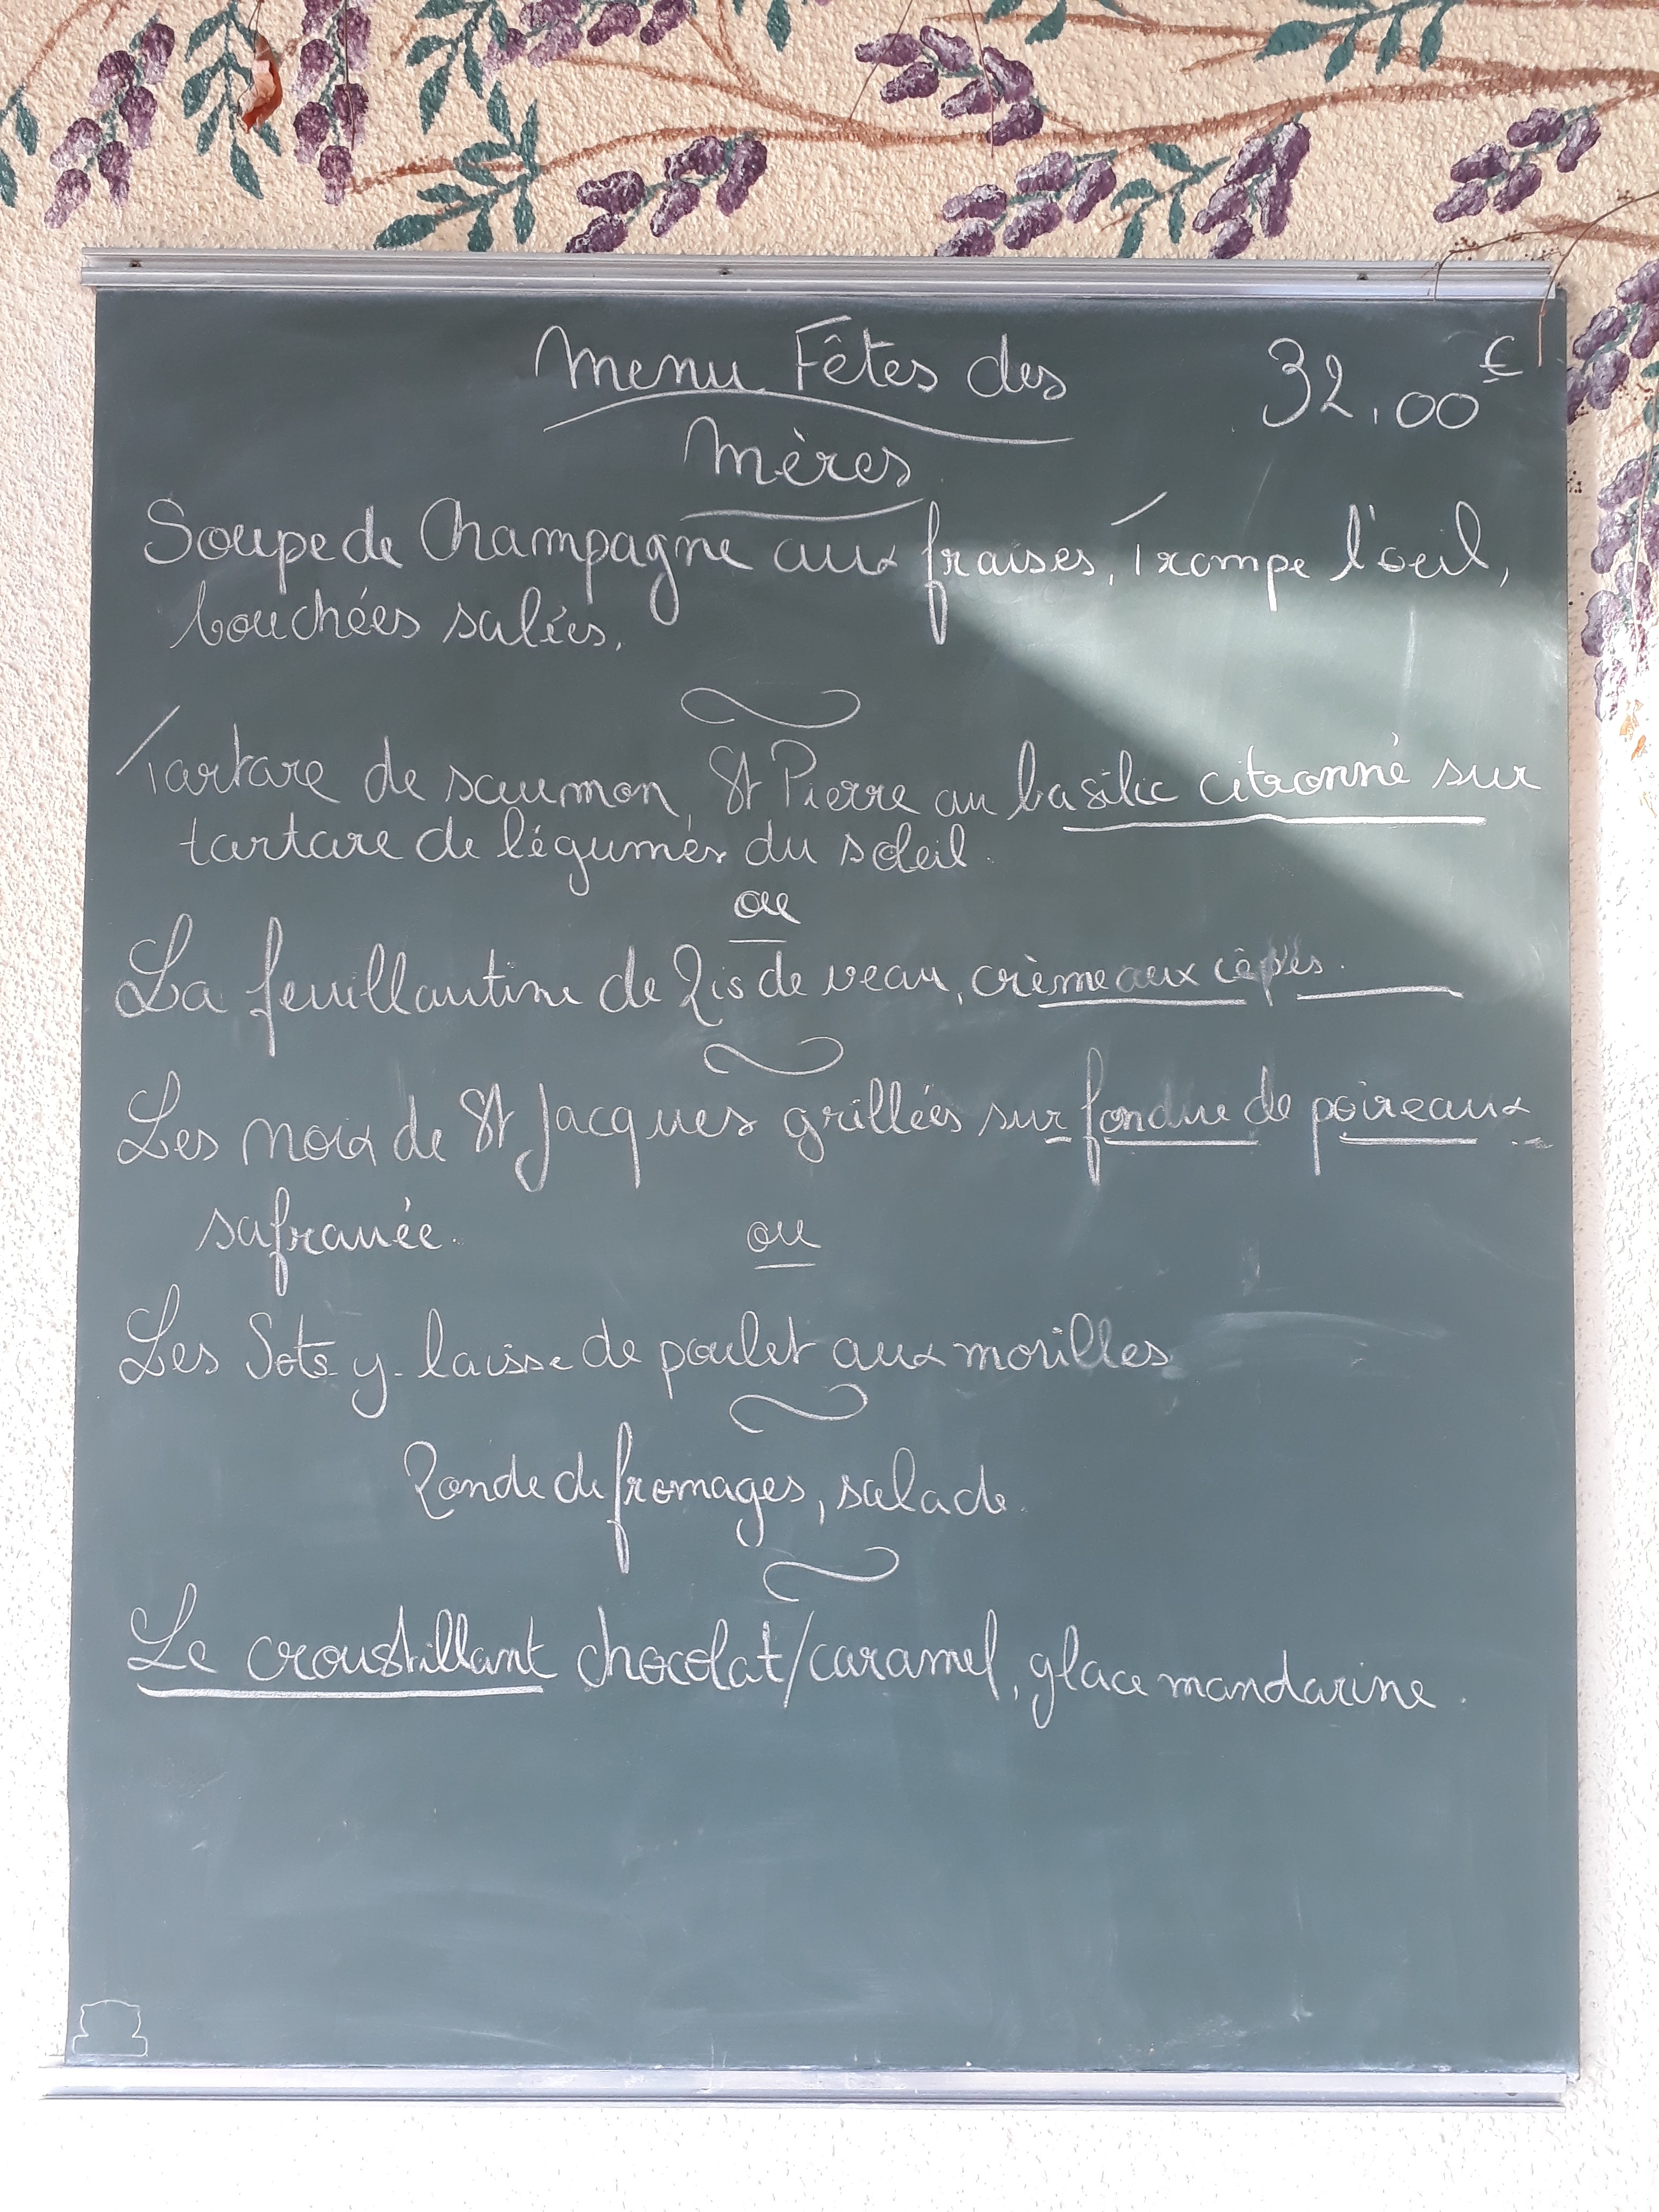 Menu Fêtes des 32,00 €
Mères
Soupe de Champagne aux fraises, Trompe l'oeil,
bouchées salées.
Tartare de saumon, St Pierre au basilic citronné sur
tartare de légumes du soleil.
ou
La feuillantine de Ris de veau, crème aux cêpes.
Les noix de St Jacques grillées sur fondue de poireaux
safranée.
ou
Les Sots y-laisse de poulet aux morilles
Ronde de fromages, salade.
Le croustillant chocolat/caramel, glace mandarine.